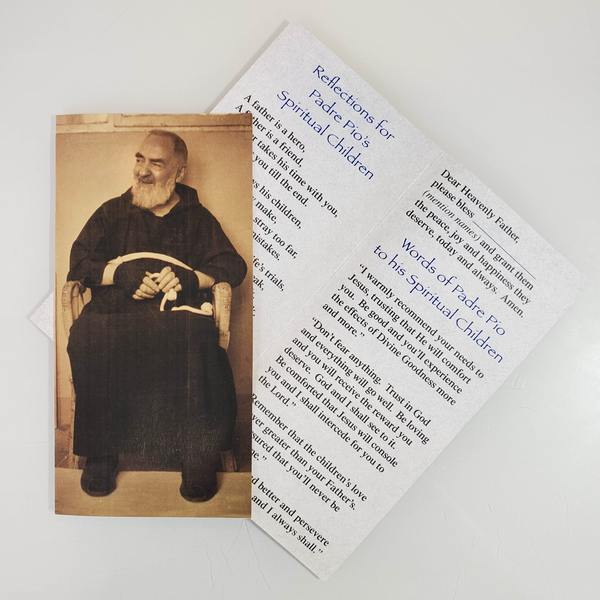 Reflections for
Padre Pio's
Spiritual Children
A father is a hero,
A father is a friend,
takes his time with you,
you till the end.
his children,
make,
stray too far,
mistakes.
life's trials,
Dear Heavenly Father,
please bless
(mention names) and grant them
the peace, joy and happiness they
deserve, today and always. Amen.
Words of Padre Pio
to his Spiritual Children
"I warmly recommend your needs to
Jesus, trusting that He will comfort
you. Be good and you'll experience
the effects of Divine Goodness more
and more."
"Don't fear anything. Trust in God
and everything will go well. Be loving
and you will receive the reward you
deserve. God and I shall see to it.
Be comforted that Jesus will console
you and I shall intercede for you to
the Lord."
Remember that the children's love
ever greater than your Father's.
assured that you'll never be
better and persevere
and I always shall."